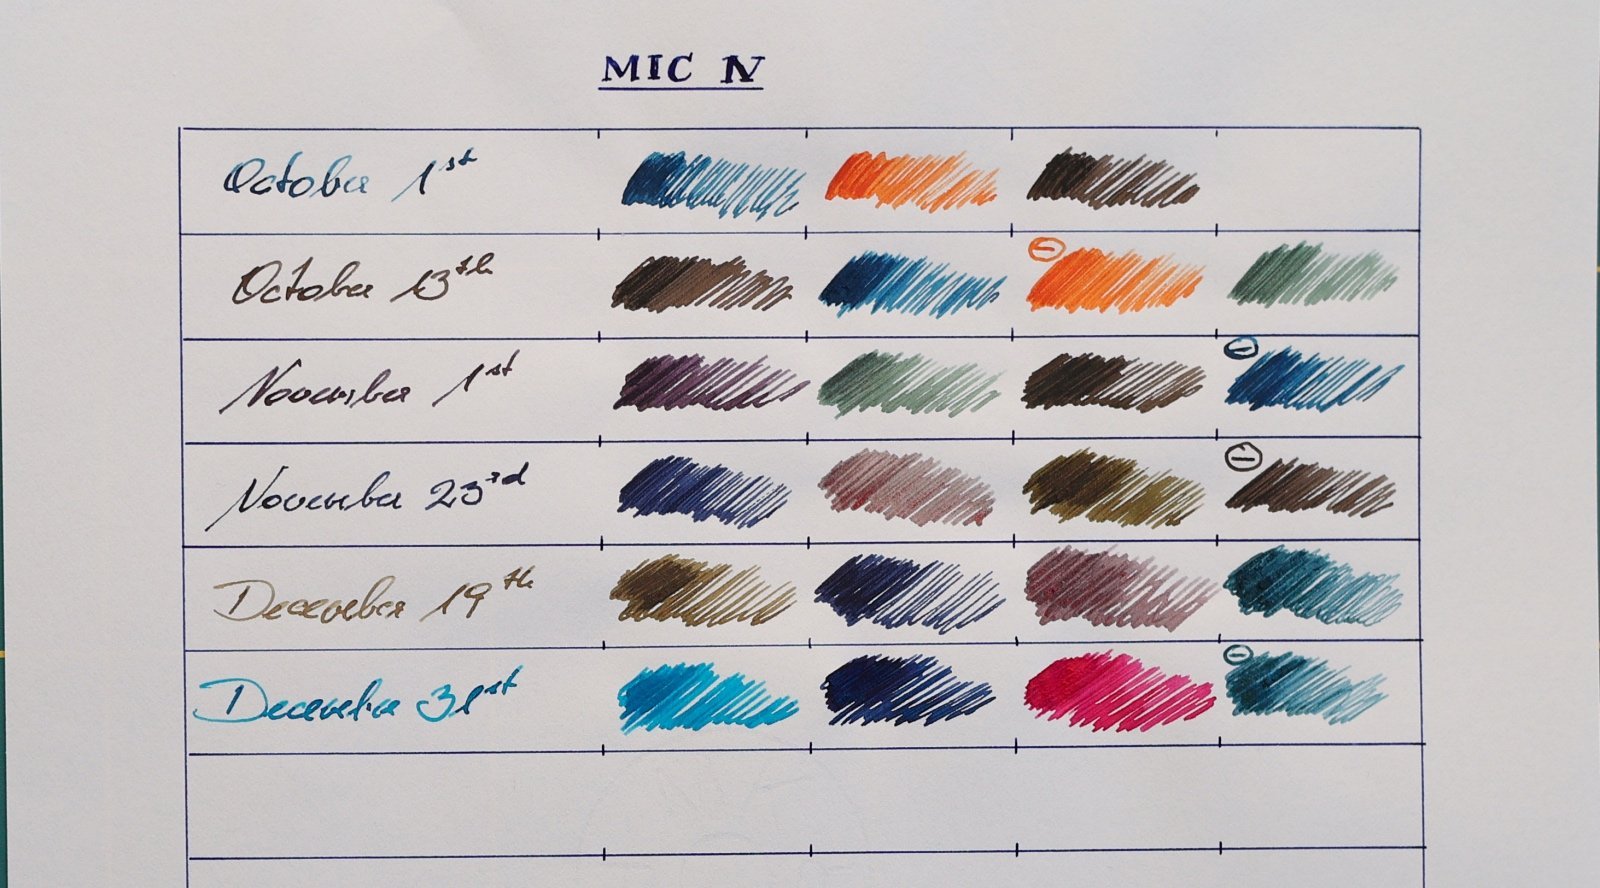 MIC IV
October 1st
October 13th
November 1st
November 23rd
December 19th
December 31st